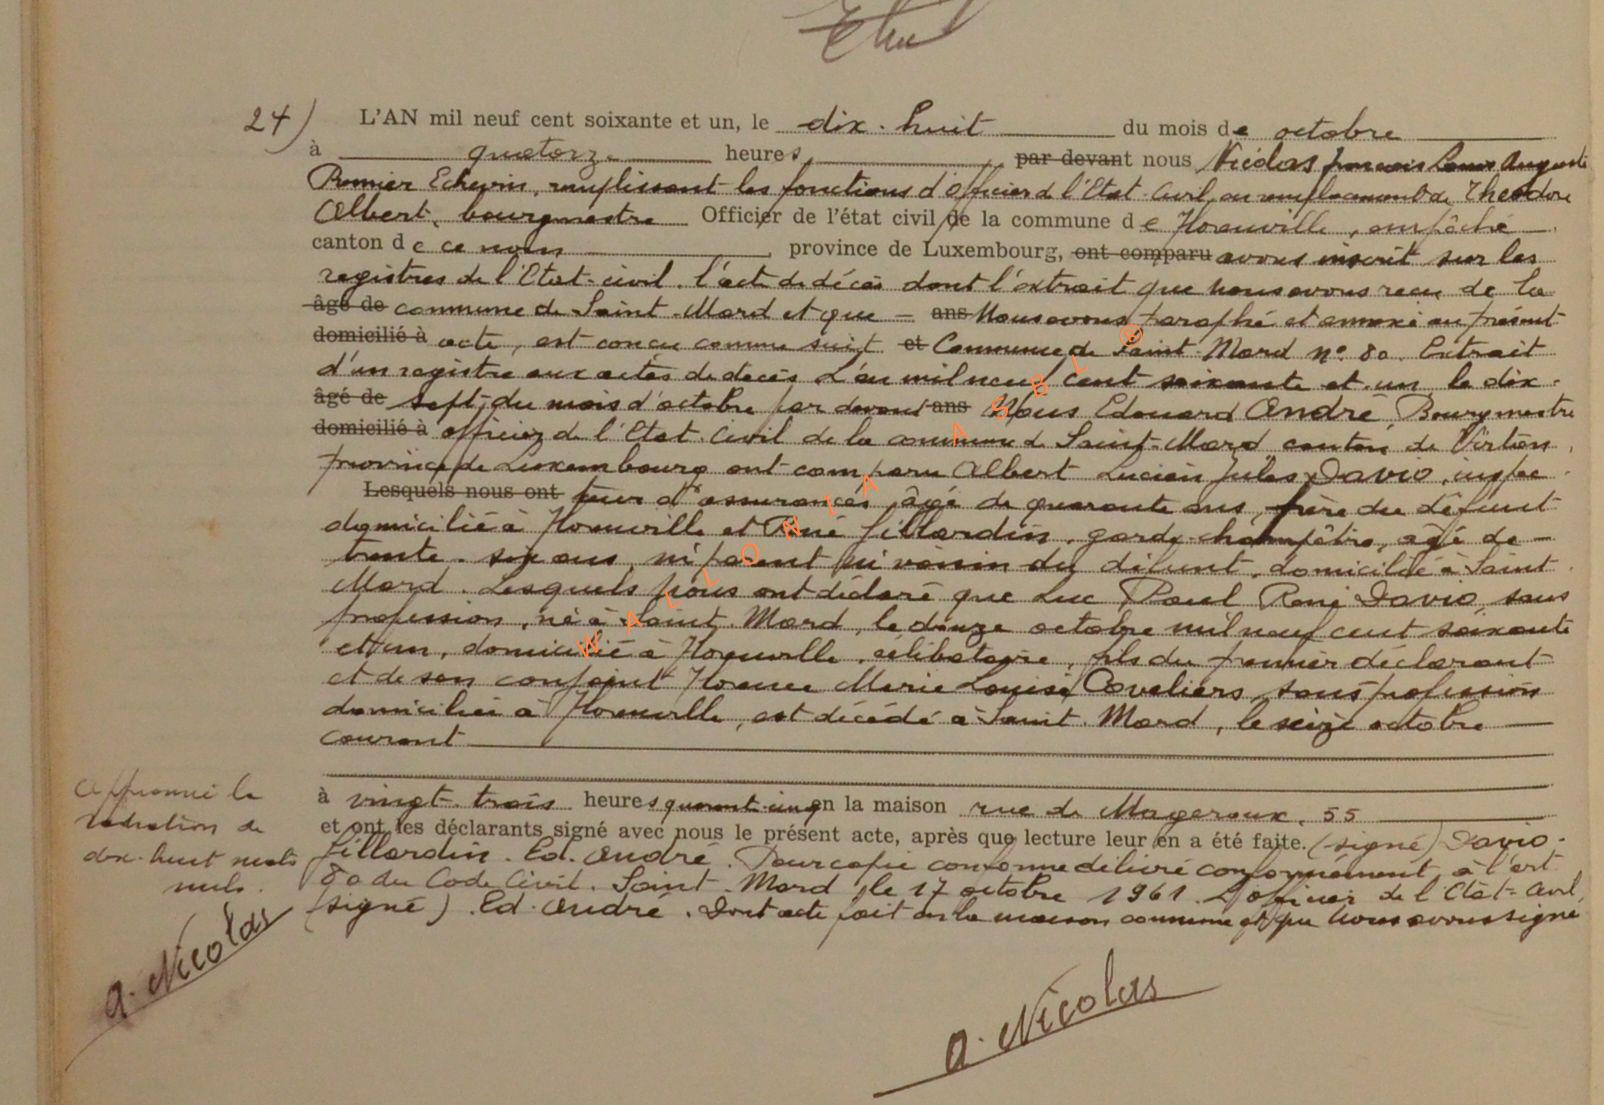 24) L'AN mil neuf cent soixante et un, le dix-huit du mois de octobre
à quatorze heures, par devant nous Nicolas François Auguste
Premier Echevin, remplissant les fonctions d'Officier d l'Etat-Civil, en remplacement de Theodore
Albert, bourgmestre Officier de l'état civil de la commune de Florenville, empêché
canton de ce nom, province de Luxembourg, ont comparu avons inscrit sur les
registres de l'Etat-civil. l'acte de décès dont l'extrait que nous avons reçu de la
âgé de commune de Saint-Mard et que – ans Nous avons paraphé et annexé au présent
domicilié à acte, est conçu comme suit et Commune de Saint-Mard n° 80. Extrait
d'un registre aux actes de décès L'an mil neuf cent soixante et un le dix-
âgé de sept du mois d'octobre par devant ans Nous Edouard André Bourgmestre
domicilié à officier de l'Etat Civil de la commune d Saint-Mard canton de Virton,
province de Luxembourg ont comparu Albert Lucien Jules Davio, inspec-
Lesquels nous ont teur d'assurances âgé de quarante ans, frère du défunt
domicilié à Florenville et René Gillardin, garde-champêtre, âgé de –
trente-six ans, ni parent ni voisin du défunt, domicilié à Saint
Mard. Lesquels nous ont déclaré que Luc Paul René Davio, sans
profession, né à Saint-Mard, le douze octobre mil neuf cent soixante
et un, domicilié à Florenville, célibataire, fils du premier déclarant
et de son conjoint Florence Marie Louise Caveliers, sans profession
domiciliée à Florenville, est décédé à Saint-Mard, le seize octobre
courant
à vingt-trois heures quarant cinq en la maison rue de Mageroux, 55
et ont les déclarants signé avec nous le présent acte, après que lecture leur en a été faite. (signé) Davio-
Gillardin. Ed. André. Pour copie conforme délivré conformément à l'art
80 du Code Civil. Saint-Mard, le 17 octobre 1961. L'officier de l'Etat-Civil,
(signé) Ed. André. Dont acte fait en la maison commune et que nous avons signé
Approuvé la
radiation de
dix-huit mots
nuls.
A. Nicolas
A. Nicolas
WALLONIA ASBL ®